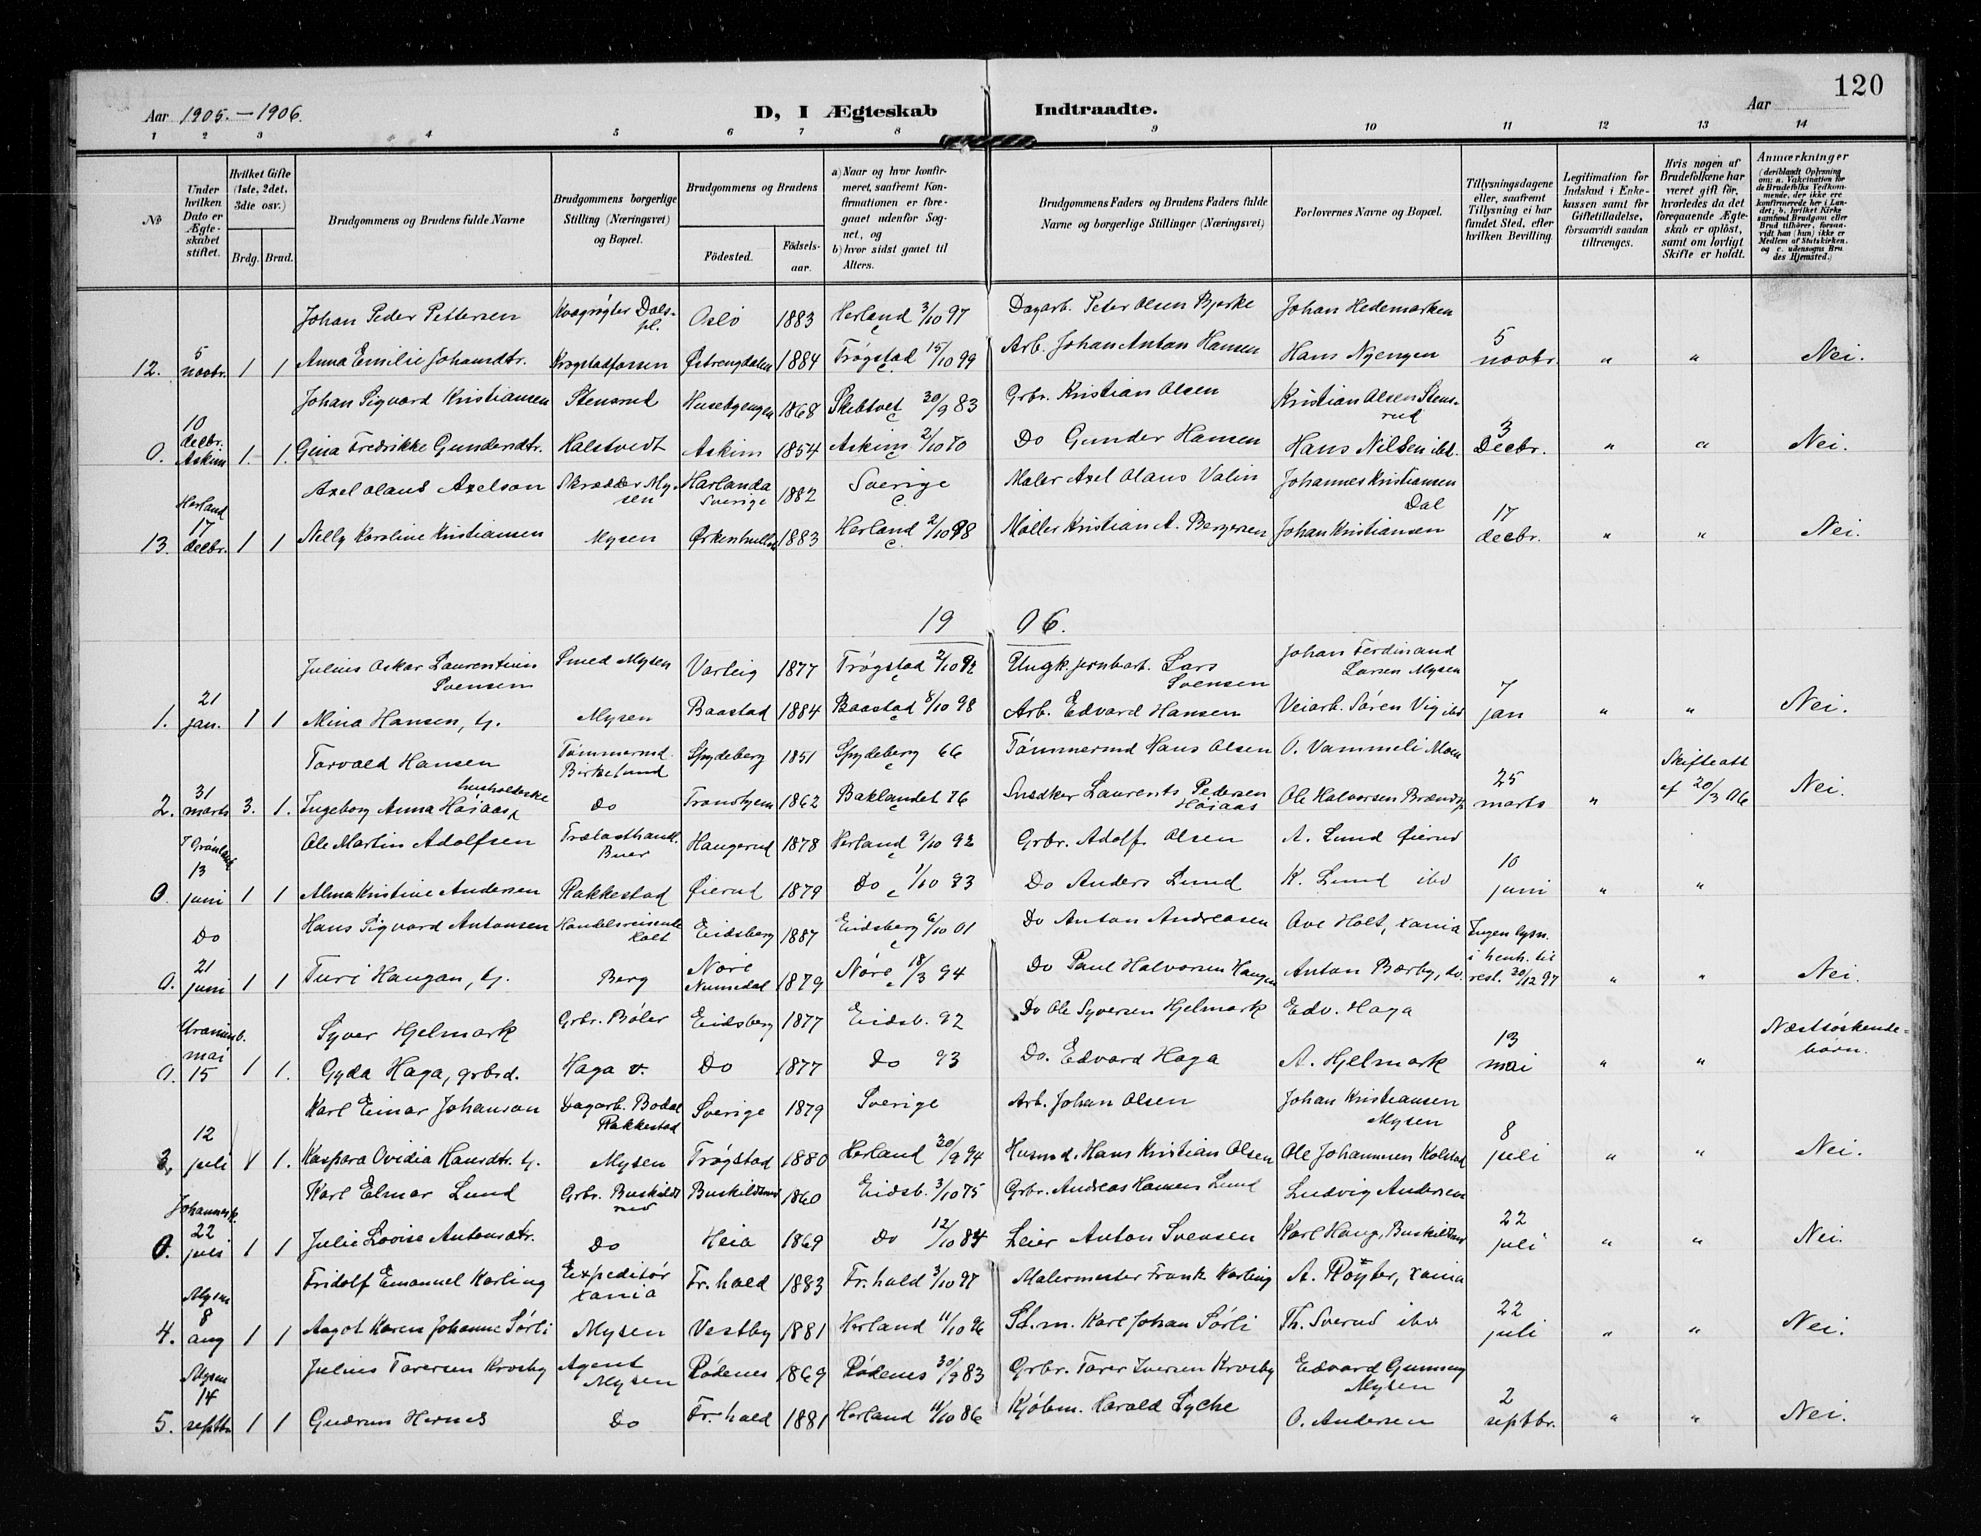 120
Aar 1905.—1906. D, I Ægteskab Indtraadte. Aar
1 2 3 4 5 6 7 8 9 10 11 12 13 14
No
Under hvilken Dato er Ægteskabet stiftet.
Hvilket Gifte (1ste, 2det, 3die osv.)
Brdg. Brud.
Brudgommens og Brudens fulde Navne
Brudgommens borgerlige Stilling (Næringsvei) og Bopæl.
Brudgommens og Brudens
Födested. Födselsaar.
a) Naar og hvor konfirmeret, saafremt Konfirmationen er foregaaet udenfor Sognet, og
b) hvor sidst gaaet til Alters.
Brudgommens Faders og Brudens Faders fulde Navne og borgerlige Stillinger (Næringsvei)
Forlovernes Navne og Bopæl.
Tillysningsdagene eller, saafremt Tillysning ei har fundet Sted, efter hvilken Bevilling.
Legitimation for Indskud i Enkekassen samt for Giftetilladelse, forsaavidt saadan tiltrænges.
Hvis nogen af Brudefolkene har været gift för, hvorledes da det foregaaende Ægteskab er oplöst, samt om lovligt Skifte er holdt.
Anmærkninger (deriblandt Oplysning om: a. Vakcination for de Brudefolks Vedkommende, der ikke ere konfirmerede her i Landet; b. hvilket Kirkesamfund Brudgom eller Brud tilhörer, forsaavidt han (hun) ikke er Medlem af Statskirken. og c. udensogns Brudes Hjemsted.)
Johan Peder Pettersen Kvægrøgter Dalspl. Oslo 1883 Herland 3/10 97 Dagarb. Peter Olsen Bjerke Johan Hedemarken
12. 5 novbr. 1 1 Anna Emilie Johansdtr. Krogstadfossen Østrengdalen 1884 Trøgstad 15/10 99 Arb. Johan Anton Hansen Hans Nyengen 5 novbr. " " Nei.
Johan Sigvard Kristiansen Stensrud Husebyengen 1868 Skibtvet 30/9 83 Grbr. Kristian Olsen Kristian Olsen Stensrud
0. 10 decbr. Askim 1. 1. Gina Fredrikke Gundersdtr. Halstvedt Askim 1854 Askim 2/10 70 Do Gunder Hansen Hans Nilsen ibd. 3 Decbr. " " Nei.
Axel Olaus Axelson Skrædder Mysen Harlanda Sverige 1882 Sverige Maler Axel Olaus Valin Johannes Kristiansen Dal
13. Herland 17 decbr. 1 1 Nelly Karoline Kristiansen Mysen 1883 Herland 2/10 98 Møller Kristian A. Bergersen Johan Kristiansen 17 decbr. " " Nei.
19 06.
Julius Oskar Laurentius Svensen Smed Mysen Varteig 1877 Trøgstad 2/10 92 Ungk. jernbarb. Lars Svensen Johan Ferdinand Larsen Mysen
1. 21 jan. 1 1 Mina Hansen, t. Mysen Baastad 1884 Baastad 8/10 98 Arb. Edvard Hansen Veiarb. Søren Vig ibd 7 jan " " Nei.
Torvald Hansen Tømmermd. Birkelund Spydeberg 1851 Spydeberg 66 Tømmermd Hans Olsen O. Vammeli Moen
2. 31 marts 3. 1. Ingeborg Anna Høiaas husholderske Do Trondhjem 1862 Baklandet 76 Snedker Laurents Pedersen Høiaas Ole Halvorsen 25 marts " Skifteatt af 20/3 06 Nei.
Ole Martin Adolfsen Trælasthandl. Buer Haugerud 1878 Herland 9/10 92 Grbr. Adolf Olsen A. Lund Øierud
0. 13 juni 1 1 Alma Kristine Andersen Rakkestad Øierud 1879 Do 1/10 93 Do Anders Lund K. Lund ibd 10 juni " "
Hans Sigvard Antonsen Handelsreisende Eidsberg 1887 Eidsberg 6/10 01 Do Anton Andreasen Ave Holt, Xania Ingen lysn.
0. Do 21 juni 1 1 Turi Haugan, t. Berg Nore Numedal 1879 Nore 18/3 94 Do Paul Halvorsen Haugen Anton Bærby, do. i henh. til resl. 20/12 97 " " Nei.
Syver Hjelmark Grbr. Bøler Eidsberg 1877 Eidsb. 92 Do Ole Syversen Hjelmark Edv. Haga Næstsøskendebørn.
0. Uranienb. mai 15 1 1. Gyda Haga, grbrd. Haga v. Do 1877 Do 93 Do. Edvard Haga A. Hjelmark 13 mai " "
Karl Einar Johanson Dagarb. Bodal Rakkestad Sverige 1879 Sverige Arb. Johan Olsen Johan Kristiansen Mysen
3. 12 juli 1 1. Kaspara Ovidia Hansdtr. t. Mysen Trøgstad 1880 Herland 30/9 94 Husmd. Hans Kristian Olsen Ole Johannesen Kolstad 8 juli " " Nei.
Karl Elmar Lund Grbr. Buskildsrud Buskildsrud 1860 Eidsb. 3/10 75 Grbr. Andreas Hansen Lund Ludvig Andersen
0. Johannesk. 22 juli 1 1 Julie Lovise Antonsdtr. Do Heia 1869 Do 12/10 84 Leier Anton Svensen Karl Haug, Buskildsrud 22 juli " " Nei.
Fridolf Emanuel Karling Expeditør Xania Fr.hald 1883 Fr.hald 3/10 97 Malermester Frank Karling A. Røyter, Xania
4. Mysen 8 aug 1 1 Aagot Karen Johanne Sørli Mysen Vestby 1881 Herland 11/10 96 St.m. Karl Johan Sørli Th. Sverud ibd 22 juli " " Nei.
Julius Toresen Krosby Agent Mysen Rødenes 1869 Rødenes 30/9 83 Grbr. Torer Iversen Krosby Edvard Gunneng Mysen
5. Mysen 14 septbr 1 1 Gudrun Hernes Do Fr.hald 1881 Herland 11/10 86 Kjøbm. Harald Lyche O. Andersen 2 septbr. " " Nei.